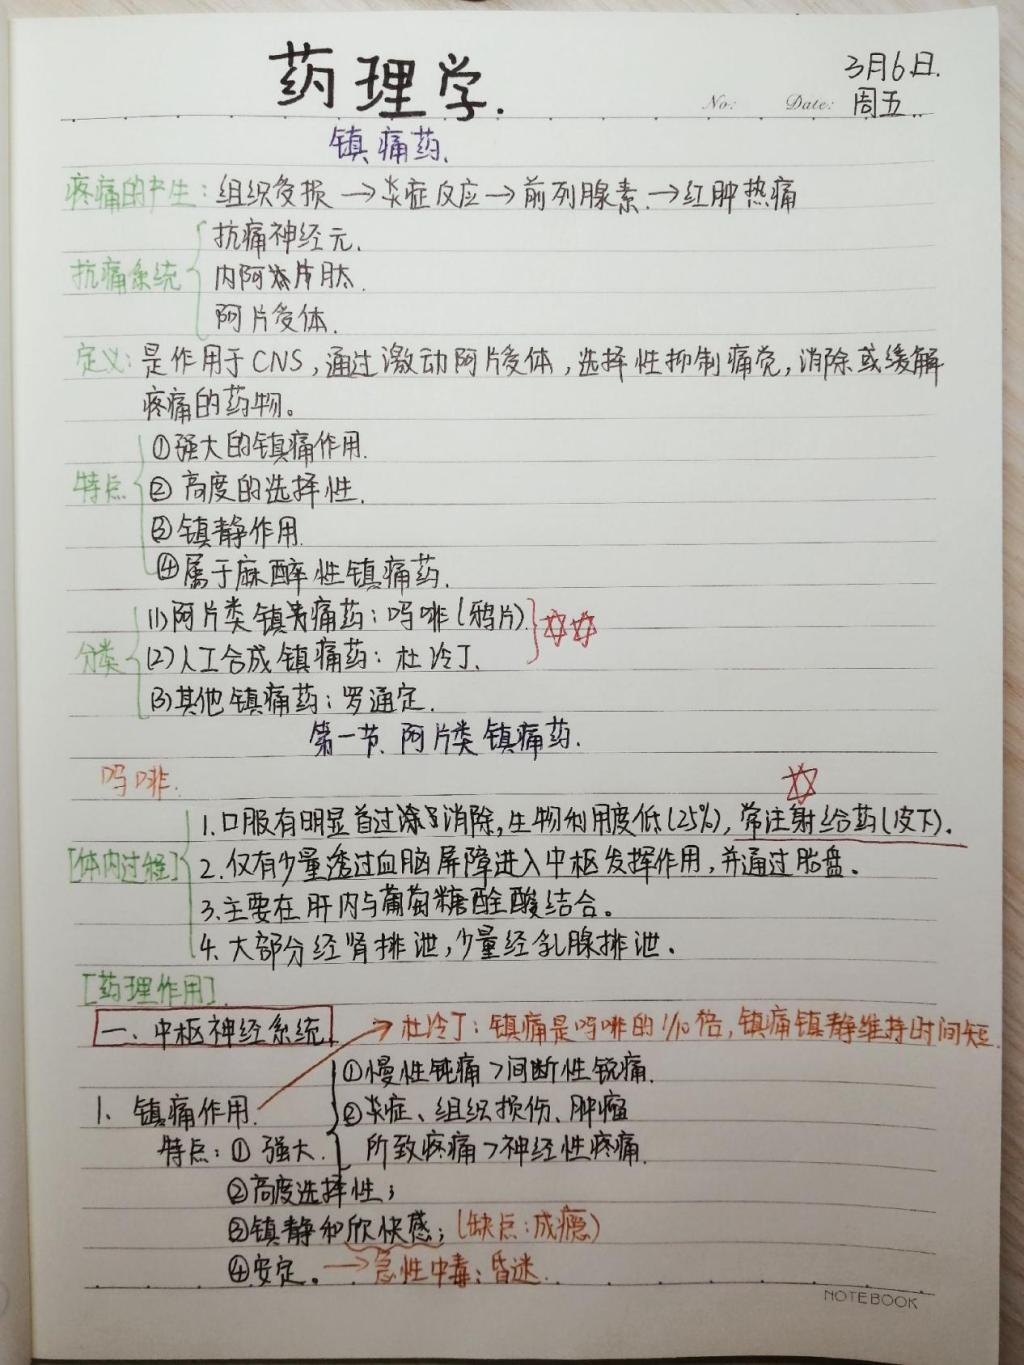 药理学.
3月6日.
No: Date: 周五
镇痛药.
疼痛的产生：组织受损→炎症反应→前列腺素.→红肿热痛
抗痛神经元.
抗痛系统 内阿片肽.
阿片受体.
定义：是作用于CNS，通过激动阿片受体，选择性抑制痛觉，消除或缓解
疼痛的药物。
①强大的镇痛作用.
特点 ②高度的选择性.
③镇静作用.
④属于麻醉性镇痛药.
(1)阿片类镇痛药：吗啡(鸦片)
分类 (2)人工合成镇痛药：杜冷丁.
(3)其他镇痛药：罗通定.
第一节.阿片类镇痛药.
吗啡.
1.口服有明显首过消除，生物利用度低(25%)，常注射给药(皮下).
[体内过程] 2.仅有少量透过血脑屏障进入中枢发挥作用，并通过胎盘。
3.主要在肝内与葡萄糖醛酸结合。
4.大部分经肾排泄，少量经乳腺排泄.
[药理作用]
一、中枢神经系统 →杜冷丁：镇痛是吗啡的1/10倍，镇痛镇静维持时间短.
①慢性钝痛>间断性锐痛.
1. 镇痛作用. ②炎症、组织损伤、肿瘤
特点：①强大. 所致疼痛>神经性疼痛.
②高度选择性；
③镇静和欣快感；(缺点：成瘾)
④安定。→急性中毒：昏迷.
NOTEBOOK